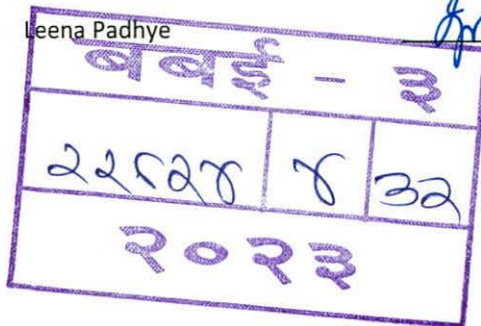 Leena Padhye
बबई - ३
२२८२४ ४ ३२
२०२३